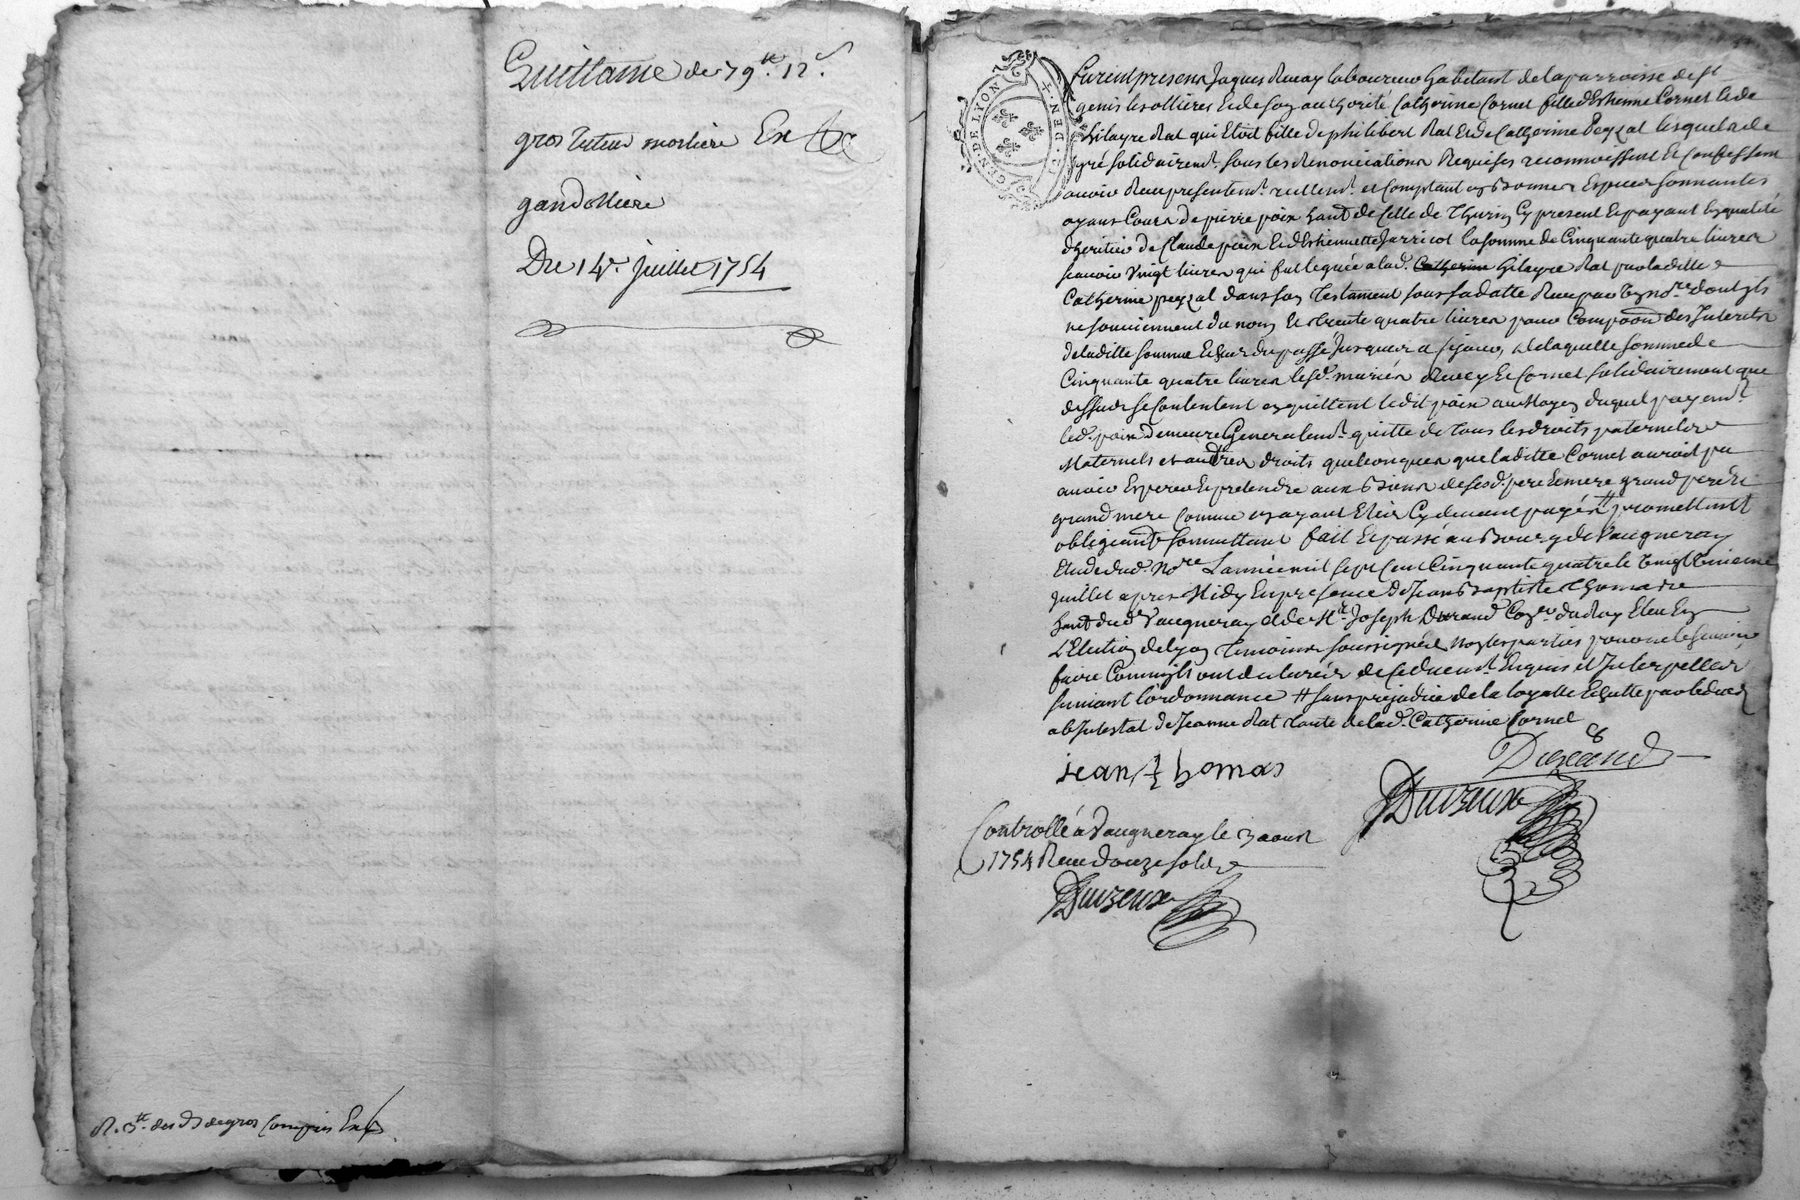 Quittance de 79ᵗᵗ 12ˢ
gros tuteur morliere Ex
gandolliere
Du 14ᵉ Juillet 1754
R. 3ᵗᵗ des de gros Compris Ex
GEN · DE LYON
Furent presens Jaques Ruay laboureur habitant de la parroisse de sᵗ
genis les ollieres et de son authorité Catherine Cornet fille d'Estienne Cornet et de
hilayre Rat qui Etoit fille de philibert Rat et de Catherine Peyzat lesquels de
gré solidairemᵗ sous les Renonciations Requises reconnoissent et Confessent
avoir Receu presentemᵗ reellemᵗ et Comptant en bonnes Especes sonnantes
ayans Cours de pierre poix habᵗ de Celle de Thurin Cy present et payant En qualité
d'heritier de Claude poix et d'Estiennette Jarricot la somme de Cinquante quatre livres
scavoir vingt livres qui fut leguée a lad. Catherine hilayre Rat par laditte
Catherine peyzat dans son Testament sous sa datte Receu par un noʳᵉ dont ils
ne souviennent du nom Et trente quatre livres pour Compoon des Interets
de laditte somme Echeus du passé Jusques a ce jour, de laquelle somme de
Cinquante quatre livres lesd. mariés Ruey et Cornet solidairement que
dessus se Contentent en quittent ledit poix au Moyen duquel payemᵗ
led. poix demeure Generalemᵗ quitte de tous les droits paternels
Maternels et autres droits quelconques que laditte Cornet auroit pu
avoir Esperer et pretendre aux Biens de sesd. pere et mere grand pere et
grand mere comme en ayant Eté Cy devant payés # promettant
obligeant soumettant fait et passé au Bourg de Vaugneray
Etude dud. Noʳᵉ L'année mil sept Cent Cinquante quatre le vingt unieme
Juillet apres Midy En presence de Jean Baptiste Thomas
habᵗ dud. Vaugneray et de Mʳ Joseph Durand Conᵉʳ du Roy Eleu En
L'Election de Lyon temoins soussignés Non les parties pour ne le scavoir
faire Comm'ils ont declarés de ce duemᵗ Enquis et Interpellés
suivant l'ordonnance # sans prejudice de la loyalle Echutte par le deces
ab Intestat de Jeanne Rat tante de lad. Catherine Cornet
jean thomas
Durand
Duvzeux
Controllé à Vaugneray le 3 aoust
1754 Receu douze sols
Duvzeux